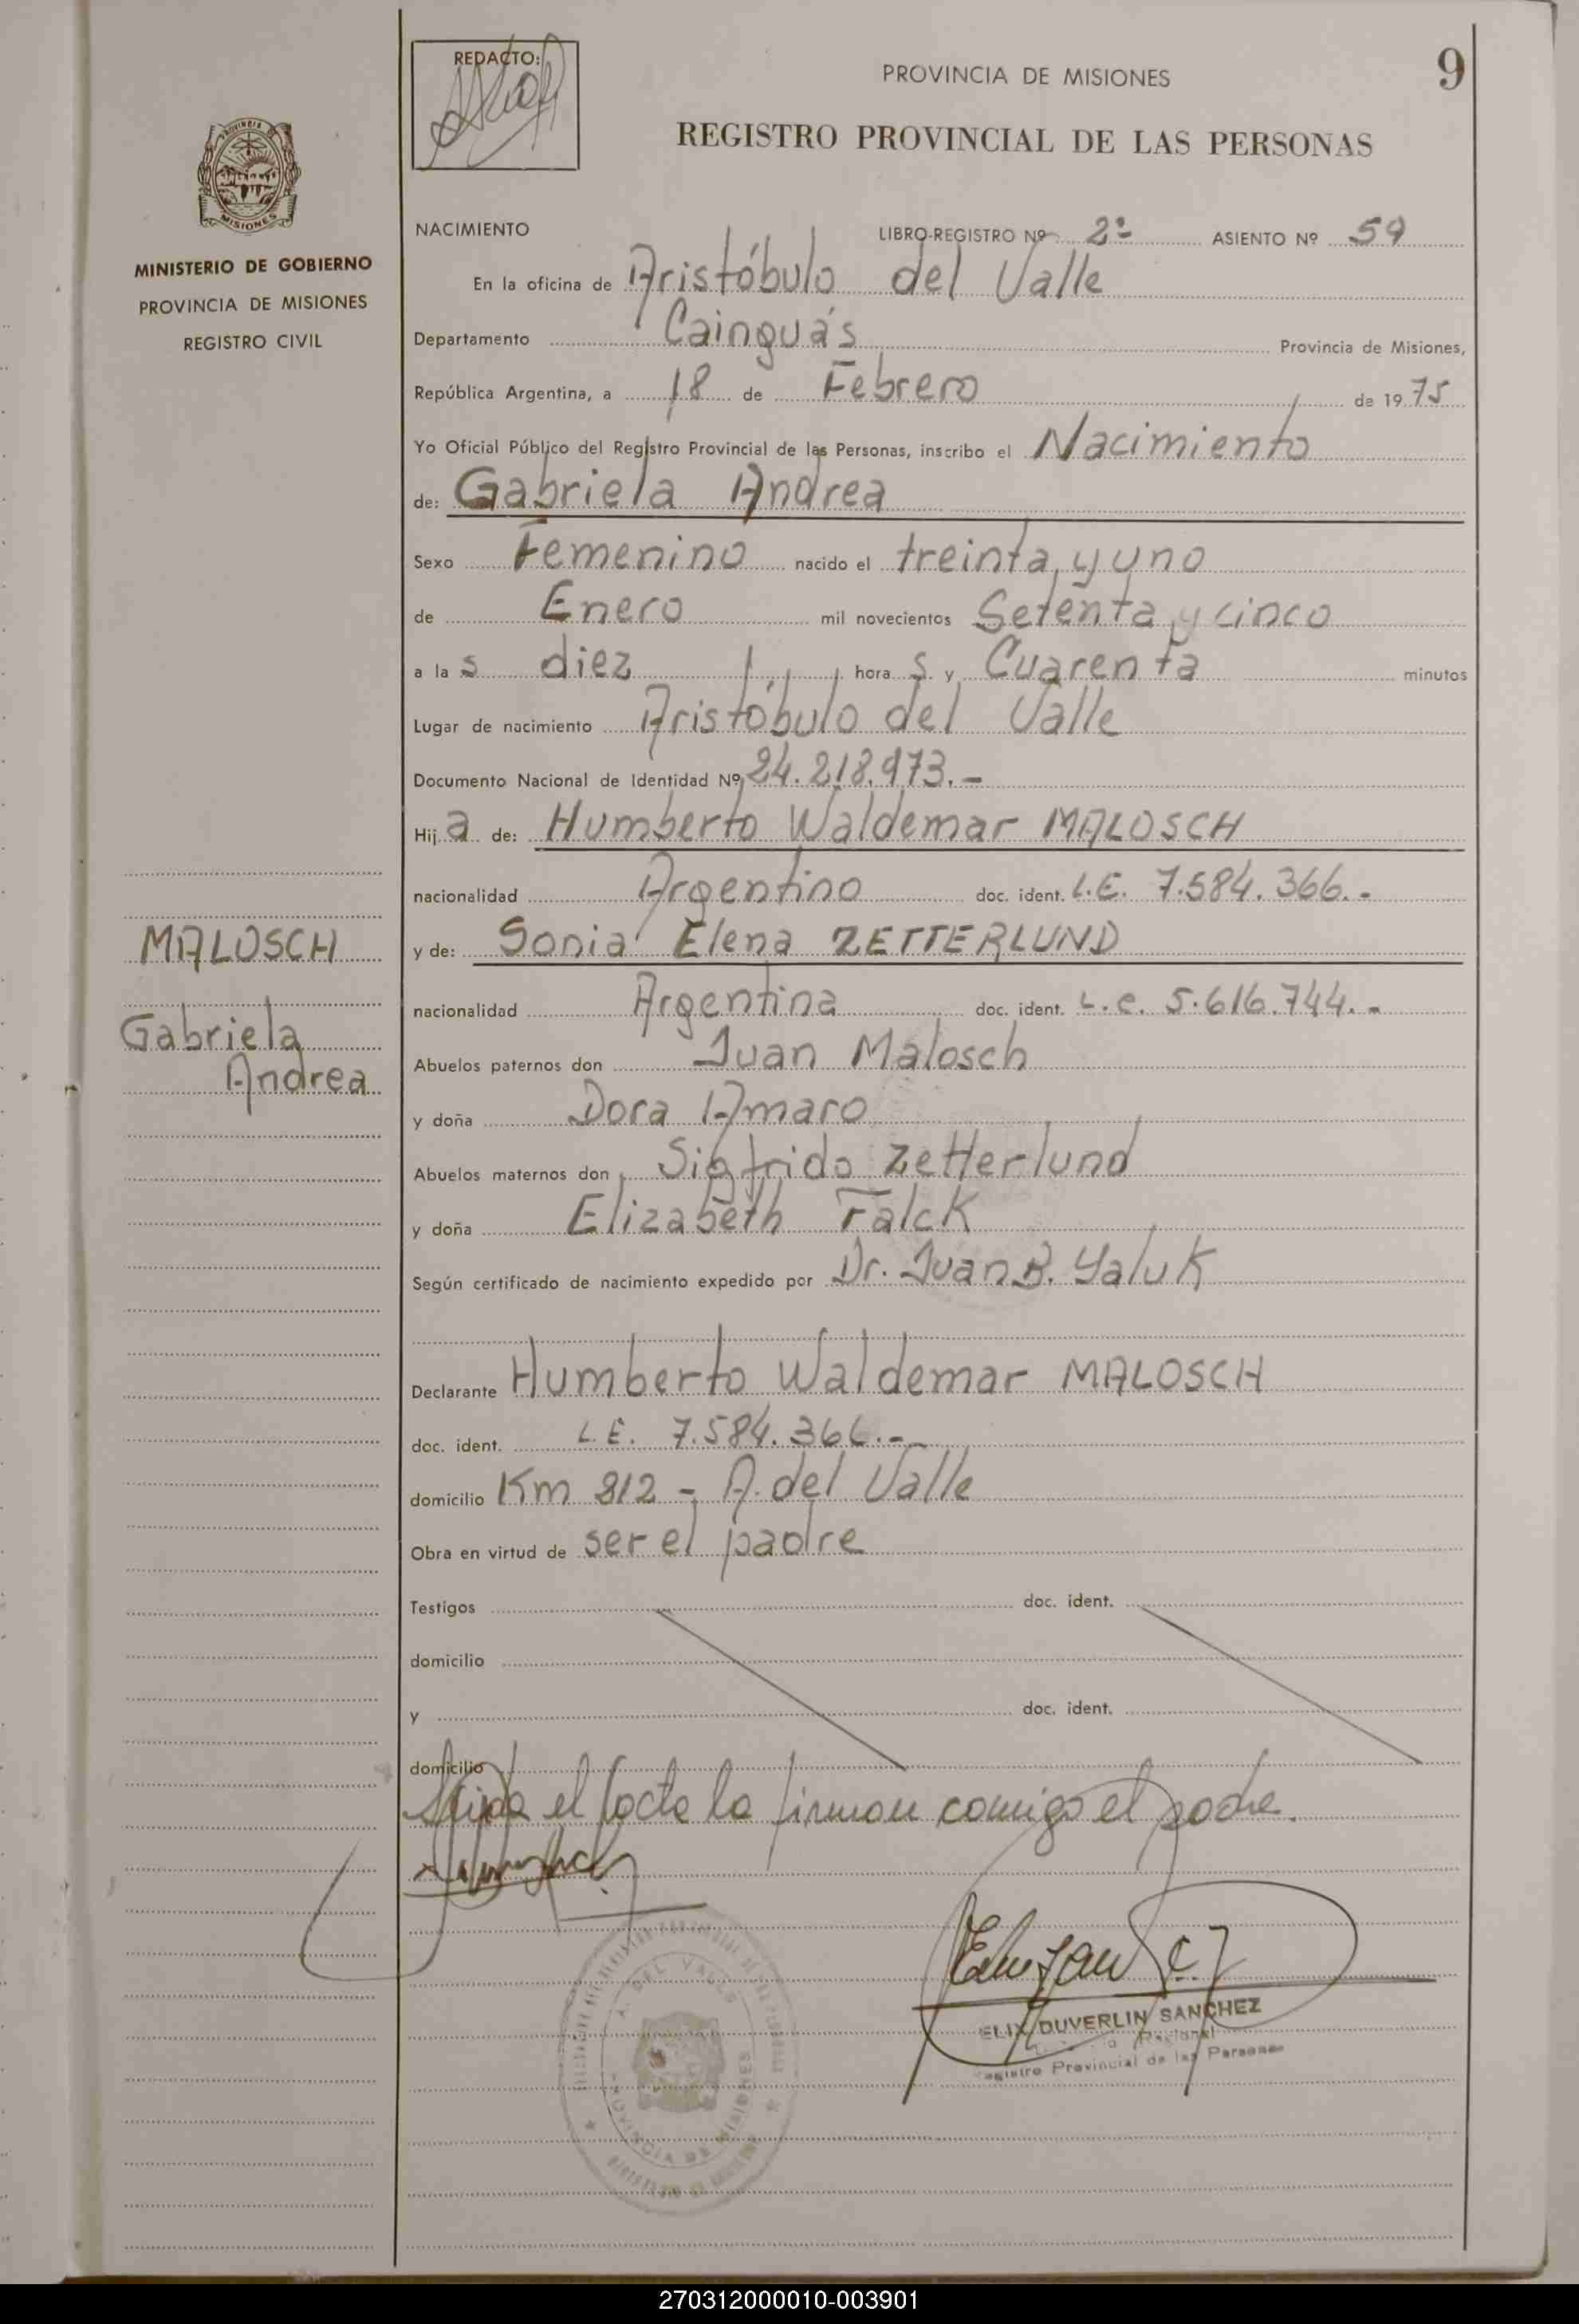 REDACTO:
PROVINCIA DE MISIONES
9
REGISTRO PROVINCIAL DE LAS PERSONAS
MISIONES
MINISTERIO DE GOBIERNO
PROVINCIA DE MISIONES
REGISTRO CIVIL
NACIMIENTO LIBRO-REGISTRO Nº 2º ASIENTO Nº 59
En la oficina de Aristóbulo del Valle
Departamento Cainguás Provincia de Misiones,
República Argentina, a 18 de Febrero de 1975
Yo Oficial Público del Registro Provincial de las Personas, inscribo el Nacimiento
de: Gabriela Andrea
Sexo Femenino nacido el treinta y uno
de Enero mil novecientos Setenta y cinco
a las diez horas y Cuarenta minutos
Lugar de nacimiento Aristóbulo del Valle
Documento Nacional de Identidad Nº 24.218.973.-
Hija de: Humberto Waldemar MALOSCH
nacionalidad Argentino doc. ident. L.E. 7.584.366.-
y de: Sonia Elena ZETTERLUND
nacionalidad Argentina doc. ident. L.C. 5.616.744.-
MALOSCH
Gabriela
Andrea
Abuelos paternos don Juan Malosch
y doña Dora Amaro
Abuelos maternos don Sigfrido Zetterlund
y doña Elizabeth Falck
Según certificado de nacimiento expedido por Dr. Juan B. Yaluk
Declarante Humberto Waldemar MALOSCH
doc. ident. L.E. 7.584.366.-
domicilio Km 812 - A. del Valle
Obra en virtud de ser el padre
Testigos doc. ident.
domicilio
y doc. ident.
domicilio
el acta la firman comigo el padre.
A. DEL VALLE
PROVINCIA DE MISIONES
ELIX DUVERLIN SANCHEZ
Regional
Registro Provincial de las Personas
270312000010-003901